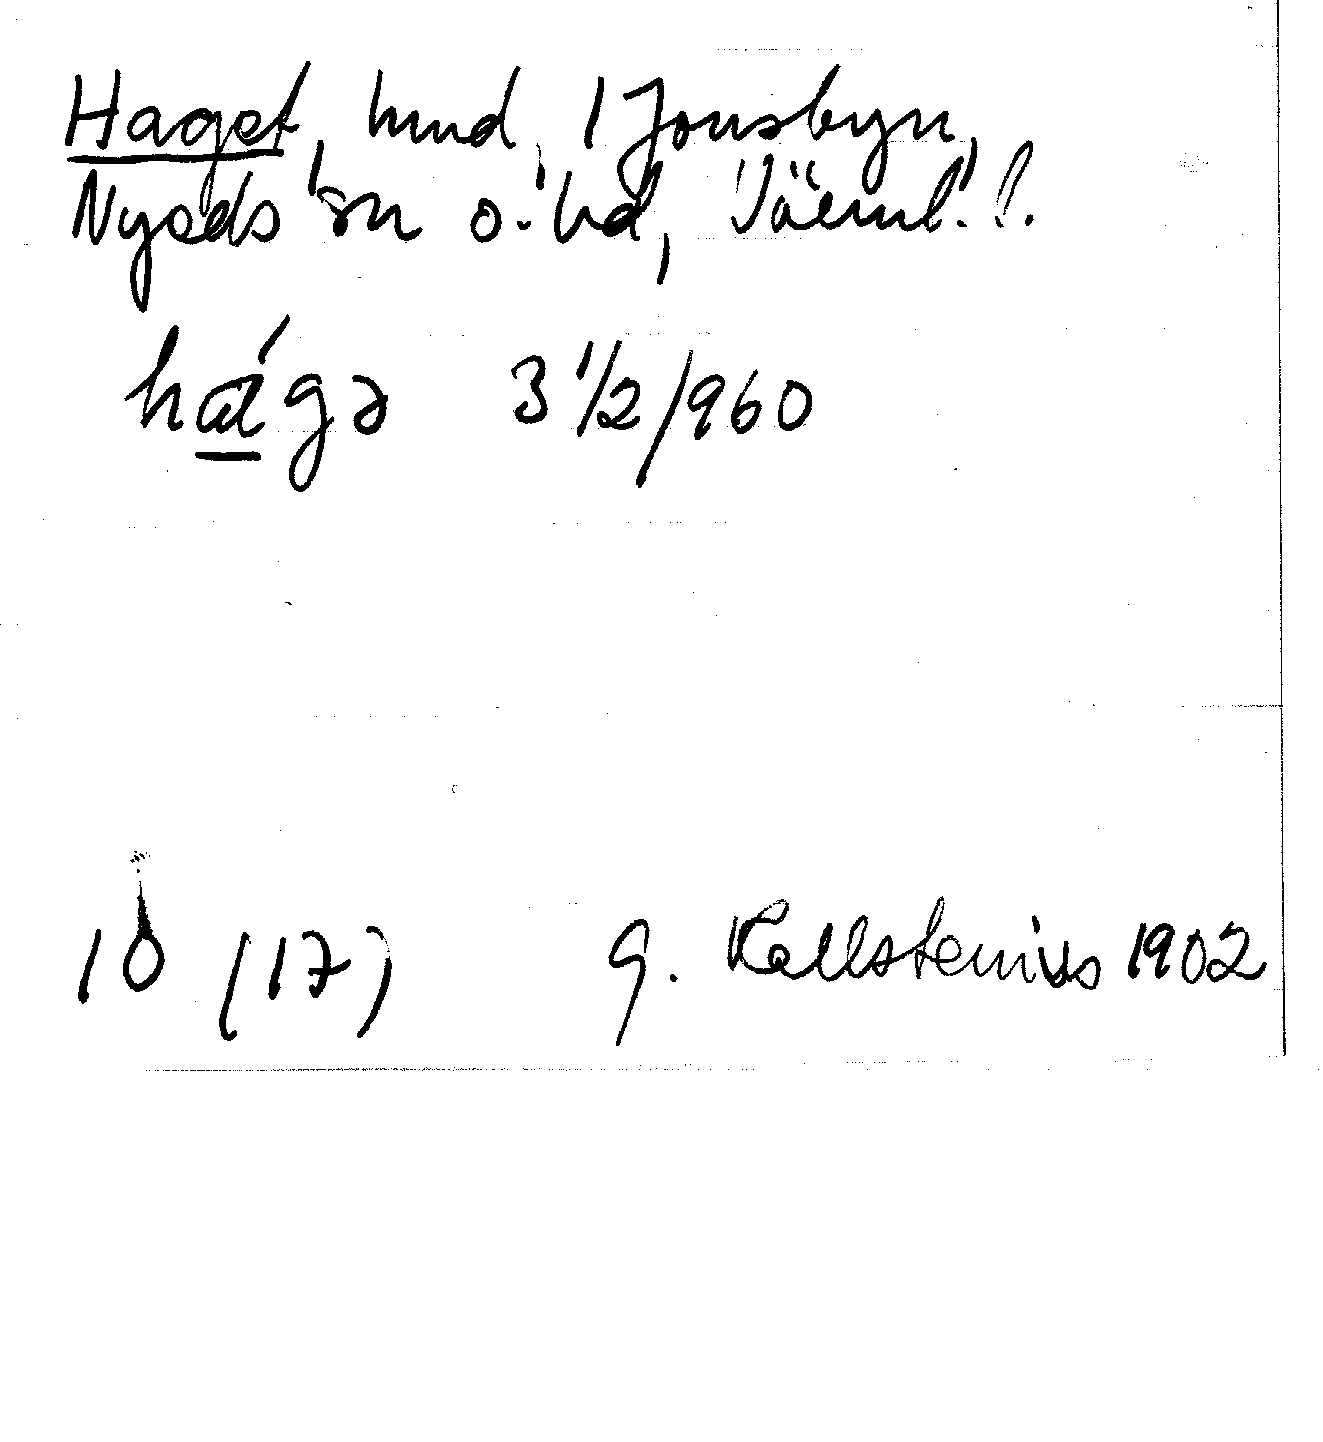 Haget, hmd, 1 Jonsbyn,
Nyeds sn o. hd, Värml. l.
hágə 3 1/2/960
10 (17) G. Kallstenius 1902